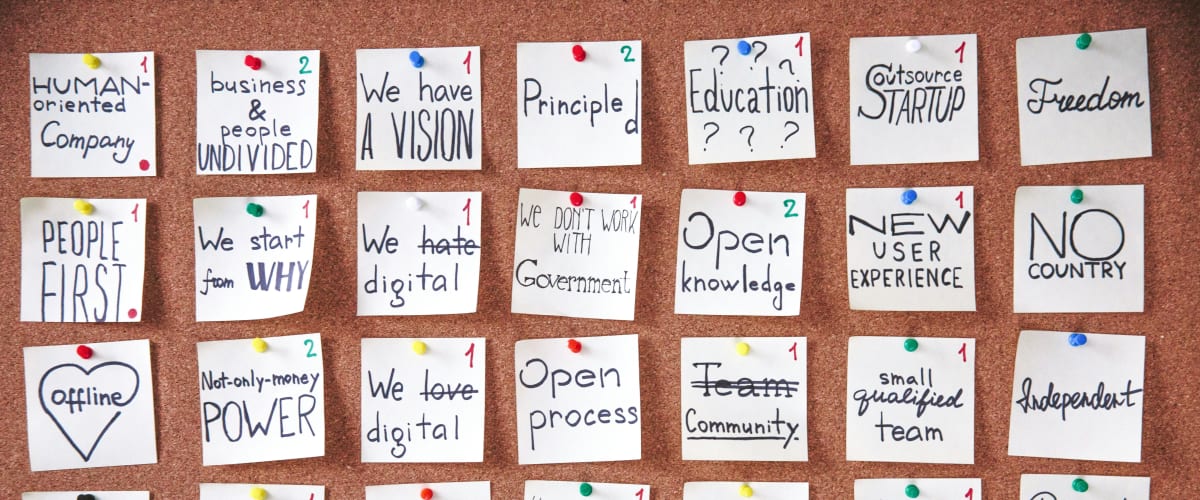 HUMAN-
oriented
Company
1
business
&
people
UNDIVIDED
2
We have
A VISION
1
Principled
2
? ? ?
Education
? ? ?
1
Outsource
STARTUP
1
Freedom
PEOPLE
FIRST.
1
We start
from WHY
1
We hate
digital
1
We DON'T WORK
WITH
Government
1
Open
knowledge
2
NEW
USER
EXPERIENCE
1
NO
COUNTRY
offline
Not-only-money
POWER
2
We love
digital
1
Open
process
Team
Community.
1
small
qualified
team
1
Independent